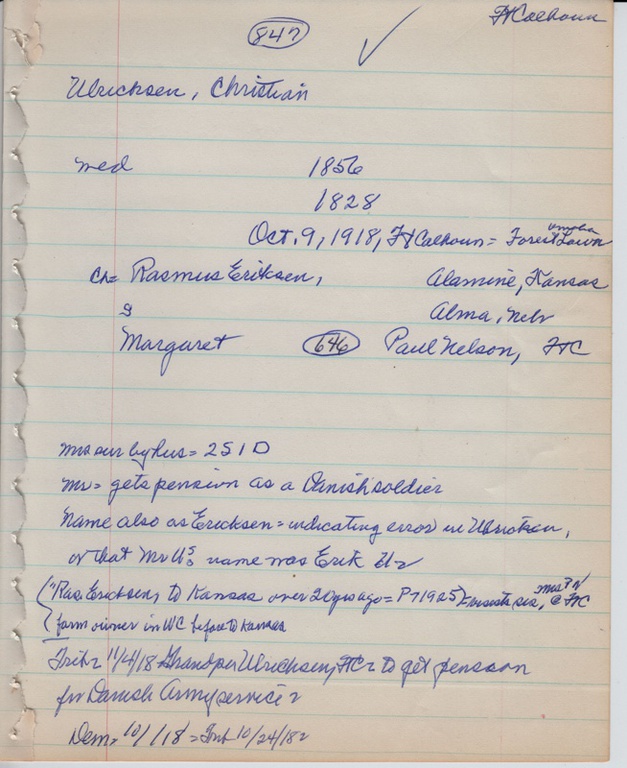 847
Ft Calhoun
Ulricksen, Christian
med 1856
1828
Oct. 9, 1918, Ft Calhoun = Forest Lawn Omaha
Ch= Rasmus Eriksen, Alamine, Kansas
g Alma, Nebr
Margaret 646 Paul Nelson, FtC
Mrs sur by hus = 2S 1D
Mr = gets pension as a Danish soldier
Name also as Ericksen = indicating error in Ulricksen,
or that Mr U's name was Erik Ur
("Ras. Ericksen, to Kansas over 20 yrs ago = P 7/1925) = sis, Mrs P N @ FtC
farm owner in WC before to Kansas
Trib 11/4/18 Grandpa Ulrichsen, FtC to get pension
for Danish Army service
Dem = 10/ /18 = Trib 10/24/18